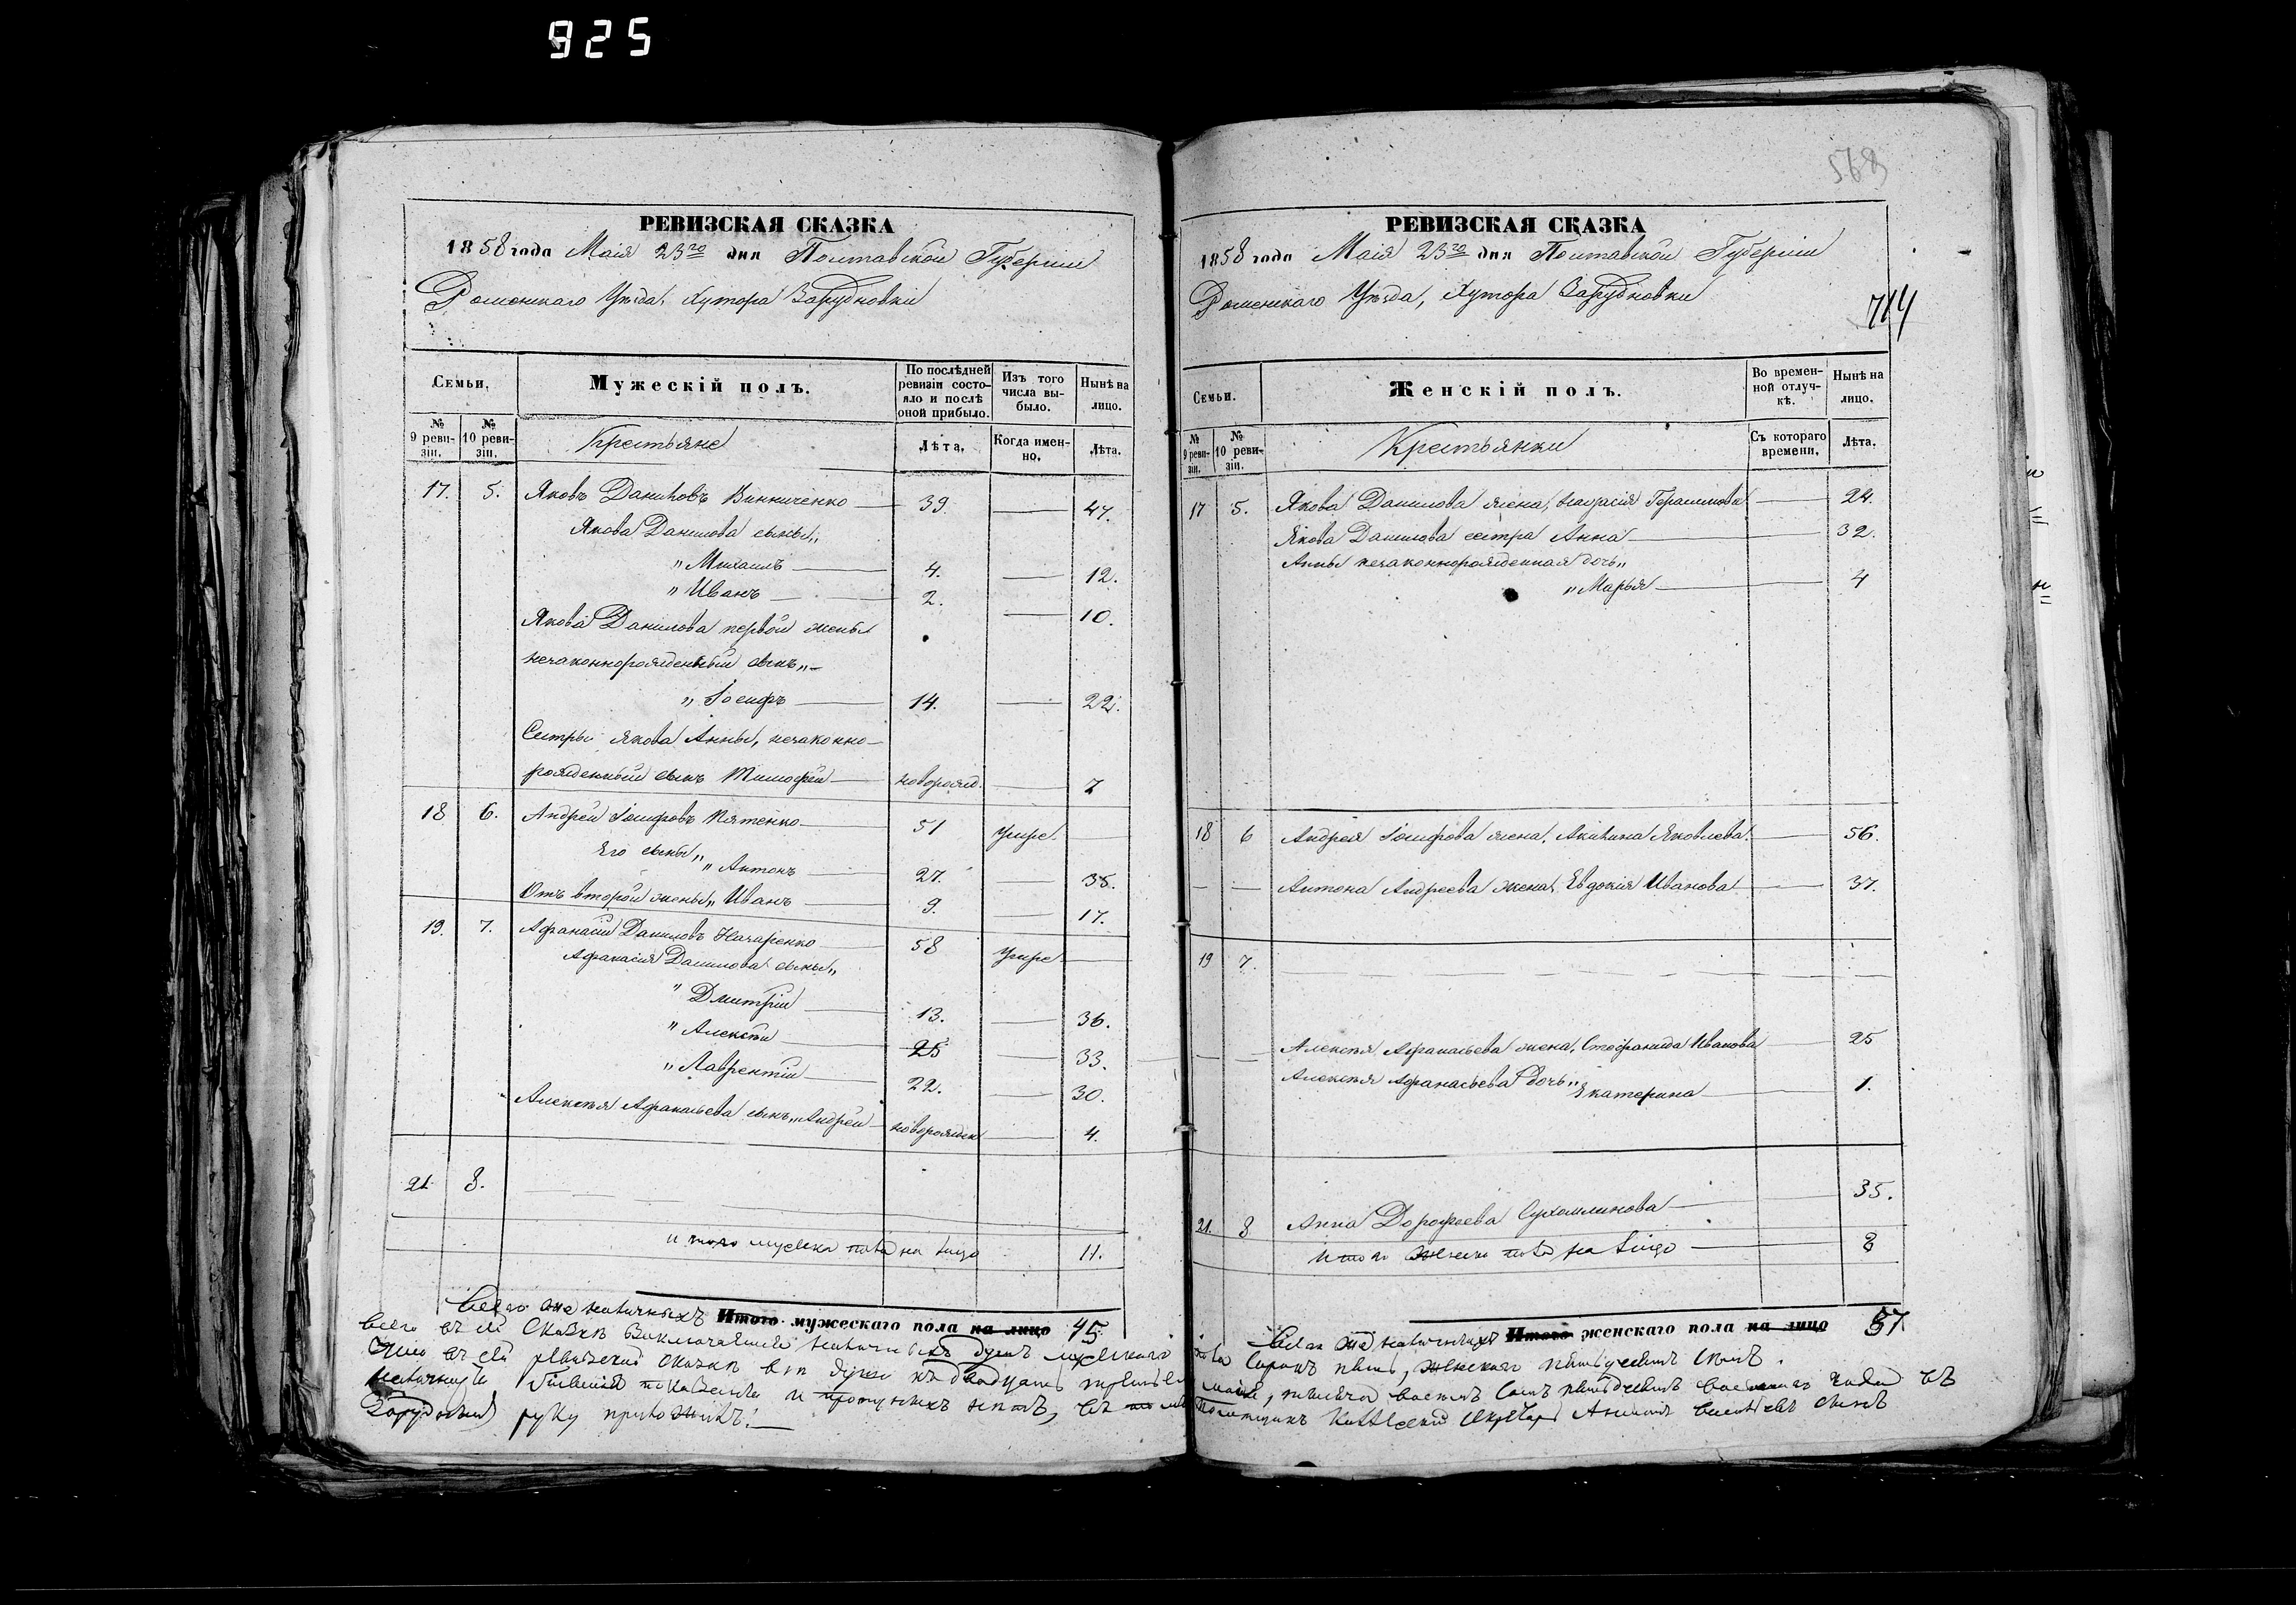 925
568
РЕВИЗСКАЯ СКАЗКА
1858 года Маія 23го дня Полтавской Губерніи
Роменскаго Уѣзда, Хутора Зарудновки
Семьи.
Мужескій полъ.
По послѣдней ревизіи состояло и послѣ оной прибыло.
Изъ того числа выбыло.
Нынѣ на лицо.
№ 9 ревизіи.
№ 10 ревизіи.
Крестьяне
Лѣта.
Когда именно.
Лѣта.
17. 5. Яковъ Даниловъ Винниченко 39. 47.
Якова Данилова сыны„
„Михаилъ 4. 12.
„Иванъ 2. 10.
Якова Данилова первой жены
незаконнорожденный сынъ„
„Іосифъ 14. 22.
Сестры Якова Анны, незаконно-
рожденный сынъ Тимофей новорожд. 7
18 6. Андрей Іосифовъ Пятенко 51 умре
Его сыны„ „Антонъ 27. 35.
Отъ второй жены„ Иванъ 9. 17.
19. 7. Афанасій Даниловъ Назаренко 58 умре
Афанасія Данилова сыны„
„Дмитрій 13. 36.
„Алексѣй 25 33.
„Лаврентій 22. 30.
Алексѣя Афанасьева сынъ„ Андрей новорожден 4.
21 8.
итого мужска пола на лицо 11.
Всего же наличныхъ Итого мужескаго пола на лицо 45
РЕВИЗСКАЯ СКАЗКА
1858 года Маія 23го дня Полтавской Губерніи
Роменскаго Уѣзда, Хутора Зарудновки
714
Семьи.
Женскій полъ.
Во временной отлучкѣ.
Нынѣ на лицо.
№ 9 ревизіи.
№ 10 ревизіи.
Крестьянки
Съ котораго времени.
Лѣта.
17 5. Якова Данилова жена, Настасія Герасимова 24.
Якова Данилова сестра Анна 32.
Анны незаконнорожденная дочь„
„Марья 4
18 6 Андрея Іосифова жена, Акилина Яковлева 56.
Антона Андреева жена, Евдокія Иванова 37.
19 7.
Алексѣя Афанасьева жена, Стефанида Иванова 25
Алексѣя Афанасьева дочь„ Екатерина 1.
21. 8 Анна Дорофеева Сухомлинова 35.
итого женска пола на лицо 8
Всего же наличныхъ Итого женскаго пола на лицо 37
Всего въ сей Сказкѣ наличныхъ душъ мужескаго пола Сорокъ пять, женскаго
Что въ сей ревизской сказкѣ всѣ души къ двадцать третьему маія, тысяча восемь сотъ пятьдесятъ года въ
и пропускныхъ нѣтъ, въ Помѣщикъ Секретарь сынъ
руку приложилъ.